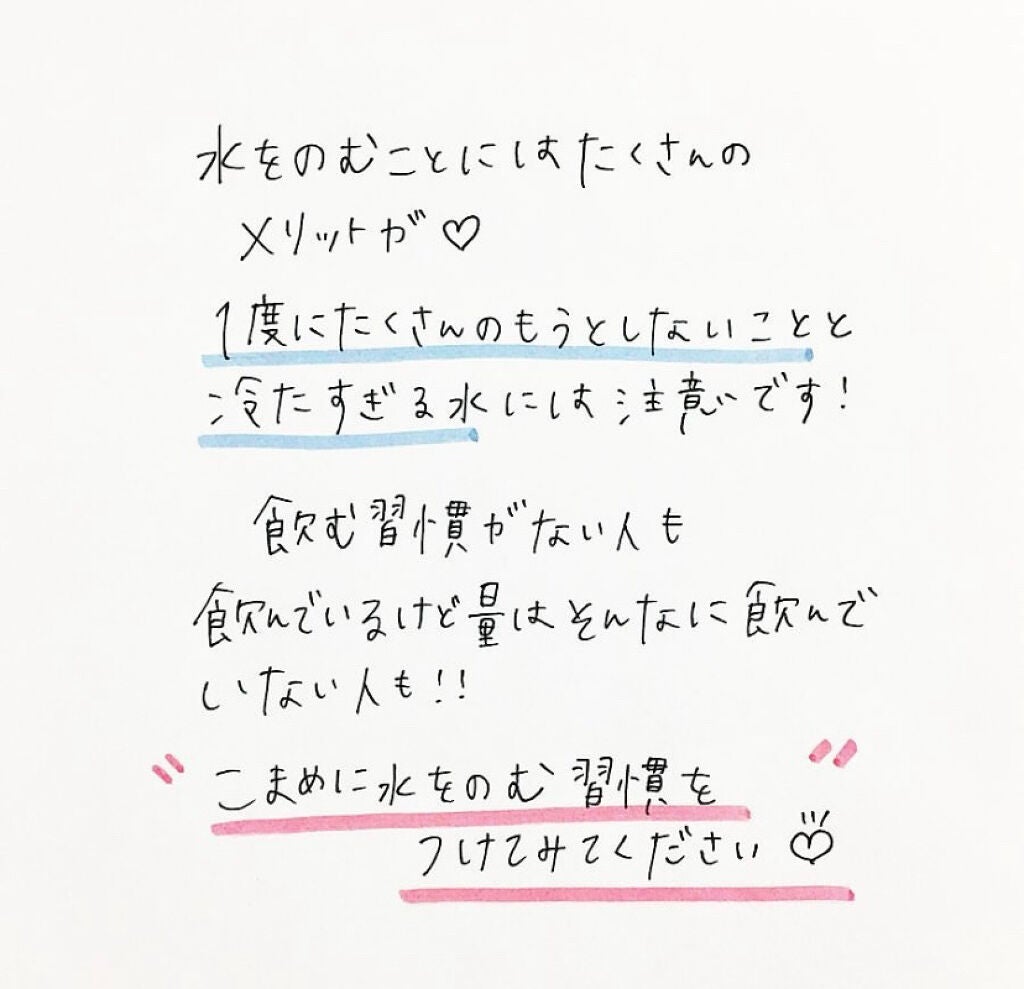 水をのむことにはたくさんの
メリットが♡
1度にたくさんのもうとしないことと
冷たすぎる水には注意です!
飲む習慣がない人も
飲んでいるけど量はそんなに飲んで
いない人も!!
"こまめに水をのむ習慣を"
つけてみてください♡